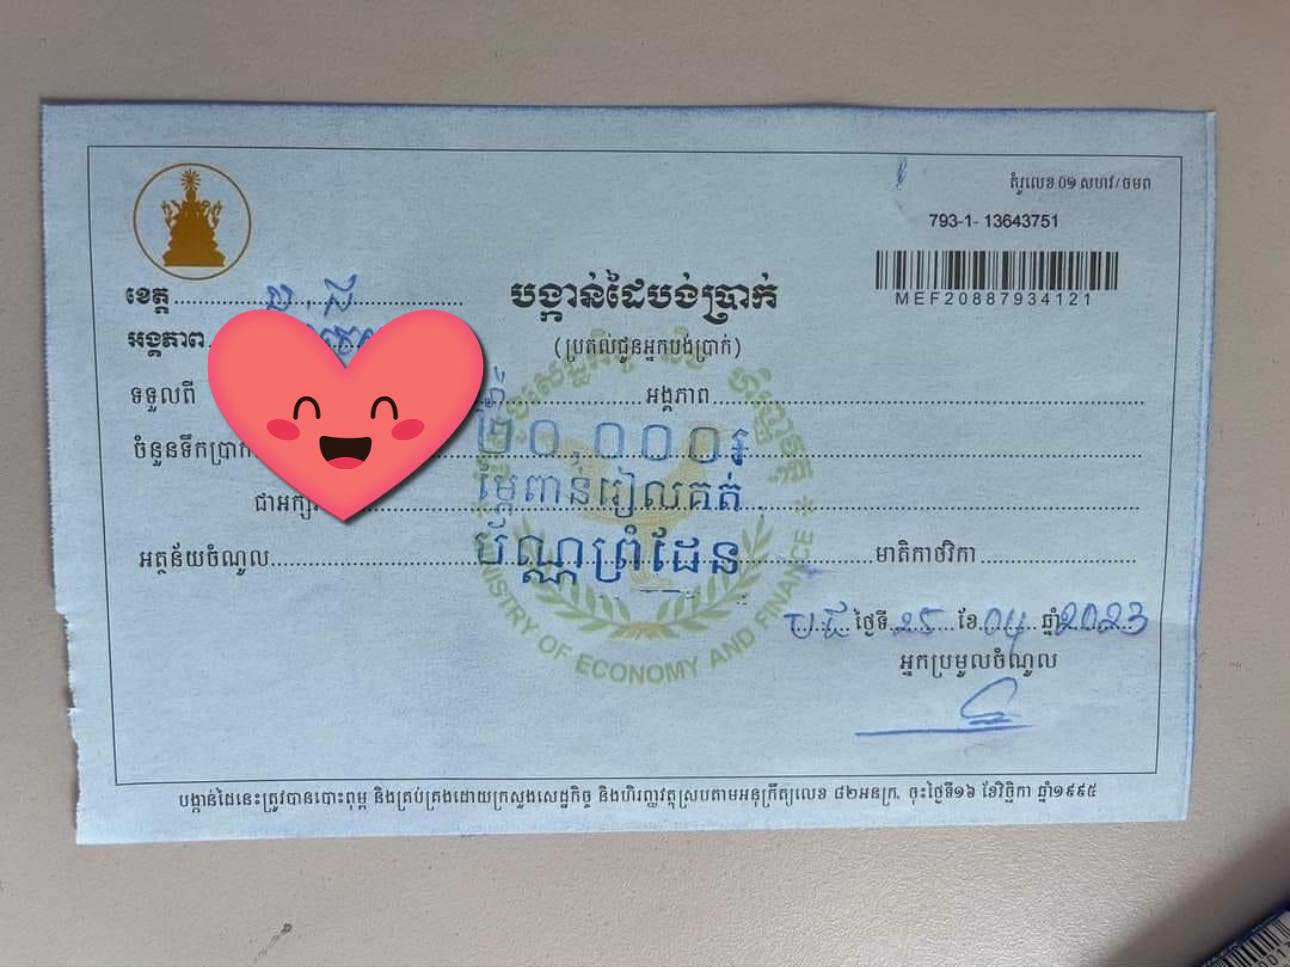 គំរូលេខ ០១ សហវ/ចមព
793-1- 13643751
MEF20887934121
ខេត្ត
បង្កាន់ដៃបង់ប្រាក់
អង្គភាព
(ប្រគល់ជូនអ្នកបង់ប្រាក់)
ទទួលពី អង្គភាព
ចំនួនទឹកប្រាក់ ២០,០០០៛
ជាអក្សរ ម្ភៃពាន់រៀលគត់
អត្ថន័យចំណូល ប័ណ្ណព្រំដែន មាតិកាថវិកា
ថ្ងៃទី 25 ខែ 04 ឆ្នាំ 2023
អ្នកប្រមូលចំណូល
MINISTRY OF ECONOMY AND FINANCE
បង្កាន់ដៃនេះត្រូវបានបោះពុម្ព និងគ្រប់គ្រងដោយក្រសួងសេដ្ឋកិច្ច និងហិរញ្ញវត្ថុស្របតាមអនុក្រឹត្យលេខ ៨២អនក្រ. ចុះថ្ងៃទី១៦ ខែវិច្ឆិកា ឆ្នាំ១៩៩៥